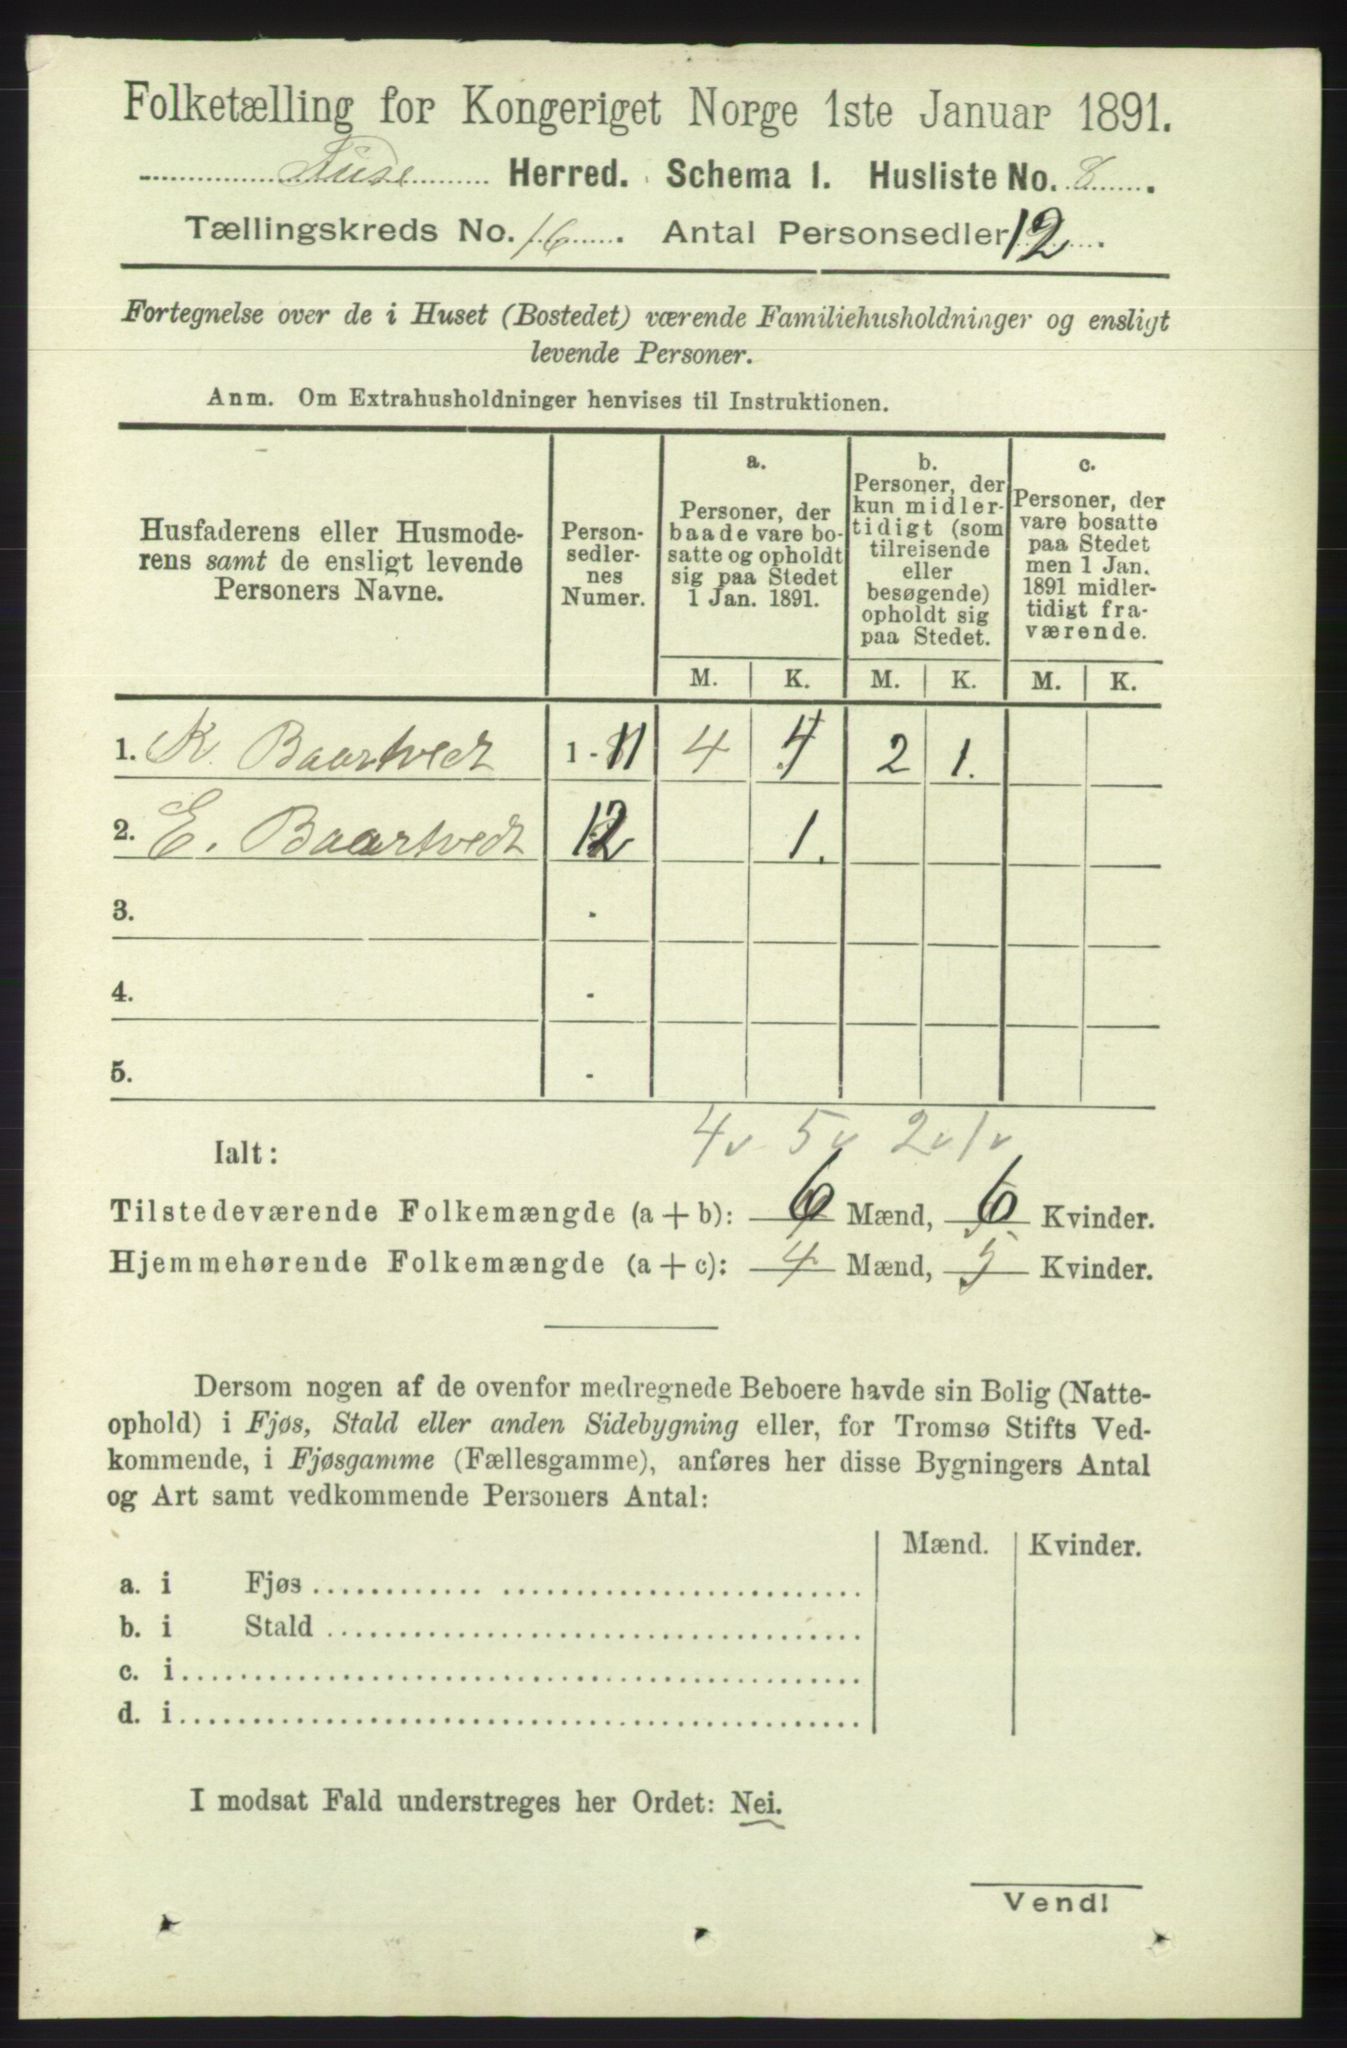 Folketælling for Kongeriget Norge 1ste Januar 1891.
Fuse Herred. Schema 1. Husliste No. 8.
Tællingskreds No. 16. Antal Personsedler 12.
Fortegnelse over de i Huset (Bostedet) værende Familiehusholdninger og ensligt
levende Personer.
Anm. Om Extrahusholdninger henvises til Instruktionen.
Husfaderens eller Husmode-
rens samt de ensligt levende
Personers Navne.
Person-
sedler-
nes
Numer.
a.
Personer, der
baade vare bo-
satte og opholdt
sig paa Stedet
1 Jan. 1891.
b.
Personer, der
kun midler-
tidigt (som
tilreisende
eller
besøgende)
opholdt sig
paa Stedet.
c.
Personer, der
vare bosatte
paa Stedet
men 1 Jan.
1891 midler-
tidigt fra-
værende.
M. K. M. K. M. K.
1. K. Baartvedt 1 - 11 4 4 2 1.
2. E. Baartvedt 12 1.
3. -
4. -
5. -
4v 5v 2v 1v
Ialt:
Tilstedeværende Folkemængde (a + b): 6 Mænd, 6 Kvinder.
Hjemmehørende Folkemængde (a + c): 4 Mænd, 5 Kvinder.
Dersom nogen af de ovenfor medregnede Beboere havde sin Bolig (Natte-
ophold) i Fjøs, Stald eller anden Sidebygning eller, for Tromsø Stifts Ved-
kommende, i Fjøsgamme (Fællesgamme), anføres her disse Bygningers Antal
og Art samt vedkommende Personers Antal:
Mænd. Kvinder.
a. i Fjøs
b. i Stald
c. i
d. i
I modsat Fald understreges her Ordet: Nei.
Vend!